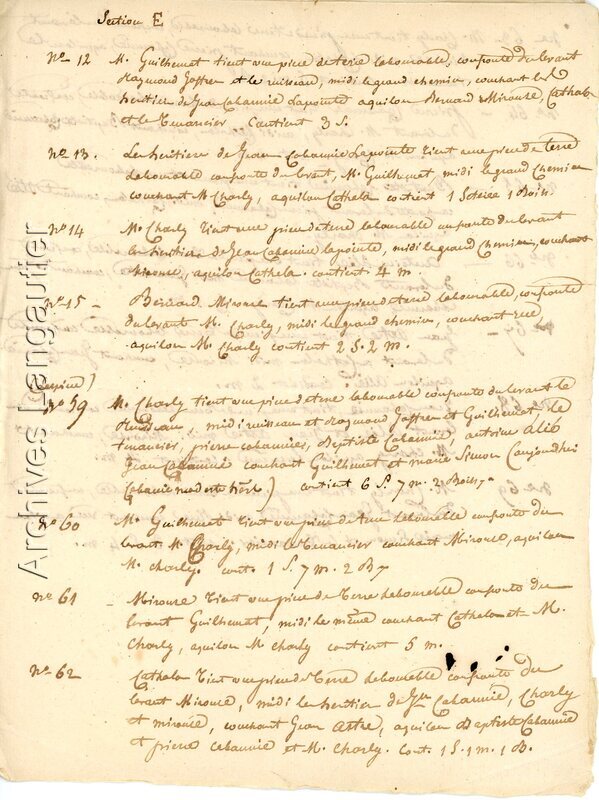 Section E
N° 12 M. Guilhemet tient une piece de terre labourable, confronte du levant
Raymond Jaffren et le ruisseau, midi le grand chemin, couchant les
heritier de Jean Cabannié Lapointe aquilon Bernard Miroure, Cathala
et le Tenancier Contient 3 S.
N° 13. Les heritiers de Jean Cabannie Lapointe tient une piece de terre
labourable confronte du levant, M. Guilhemet, midi le grand Chemin
couchant M Charly, aquilon Cathala contient 1 Seteree 1 Bois.
N° 14 M. Charly tient une piece de terre labourable confronte du levant
les heritiers de Jean Cabannie lapointe, midi le grand Chemin, couchant
Miroure, aquilon Cathela. contient 4 m.
N° 15 - Bernard Miroure tient une piece de terre labourable, confronte
du levant M. Charly, midi le grand chemin, couchant rue,
aquilon M. Charly contient 2 S. 2 m.
N° 59 M. Charly tient une piece de terre labourable confronte du levant le
Ruisseau, midi ruisseau et Raymond Jaffren et Guilhemet, le
tenancier, pierre cabannies, Baptiste Cabannié, antoine Alix
Jean Cabannié couchant Guilhemet et marie Simon
Cabanie contient 6 S. 7 m. 2 Bois
N° 60 M. Guilhemet tient une piece de terre labourable confronte du
levant M. Charly, midi le Tenancier couchant Miroure, aquilon
M. charly. cont. 1 S. 7 m. 2 B
N° 61 - Miroure tient une piece de terre labourable confronte du
levant Guilhemet, midi le même couchant Cathala et M.
Charly, aquilon M charly contient 5 m.
N° 62 Cathala tient une piece de terre labourable confronte du
levant Miroure, midi les heritier de Jn Cabannie, Charly
et miroure, couchant Jean Astre, aquilon Baptiste Cabannié
et pierre cabannie et M. Charly. Cont. 1 S. 1 m. 1 B.
Archives Langautier